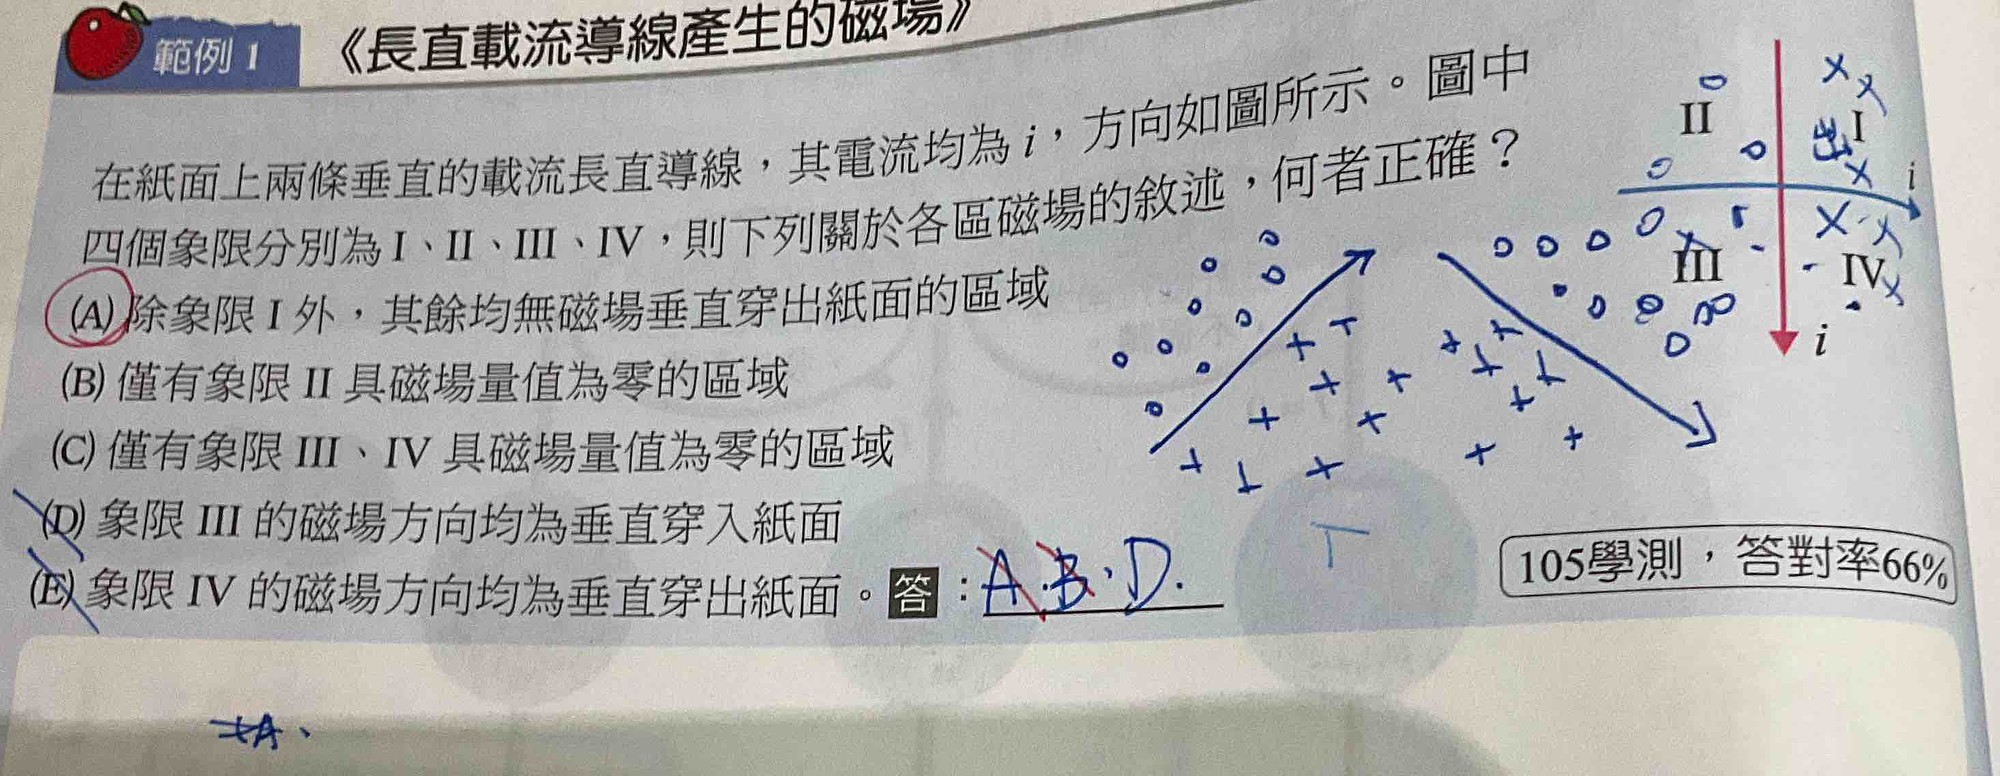 範例 1 《長直載流導線產生的磁場》
在紙面上兩條垂直的載流長直導線，其電流均為 i，方向如圖所示。圖中
四個象限分別為 I、II、III、IV，則下列關於各區磁場的敘述，何者正確？
(A) 除象限 I 外，其餘均無磁場垂直穿出紙面的區域
(B) 僅有象限 II 具磁場量值為零的區域
(C) 僅有象限 III、IV 具磁場量值為零的區域
(D) 象限 III 的磁場方向均為垂直穿入紙面
(E) 象限 IV 的磁場方向均為垂直穿出紙面。答：A.B、D.
105學測，答對率66%
II
I
i
III
IV
i